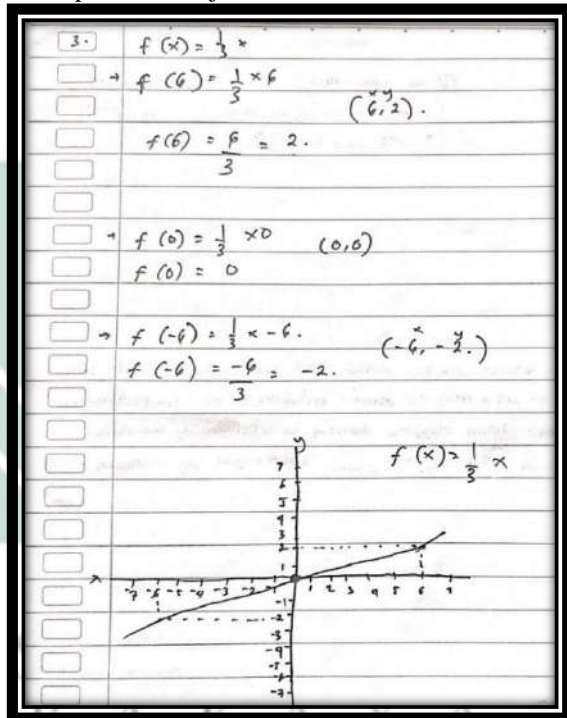 3.
f (x) = 1/3 x
→ f (6) = 1/3 × 6
x y
(6, 2).
f(6) = 6/3 = 2.
→ f (0) = 1/3 × 0 (0,0)
f (0) = 0
→ f (-6) = 1/3 × -6.
x y
(-6, -2.)
f (-6) = -6/3 = -2.
y
f (x) = 1/3 x
7
6
5
4
3
2
1
x -7 -6 -5 -4 -3 -2 -1 1 2 3 4 5 6 7
-1
-2
-3
-4
-5
-6
-7